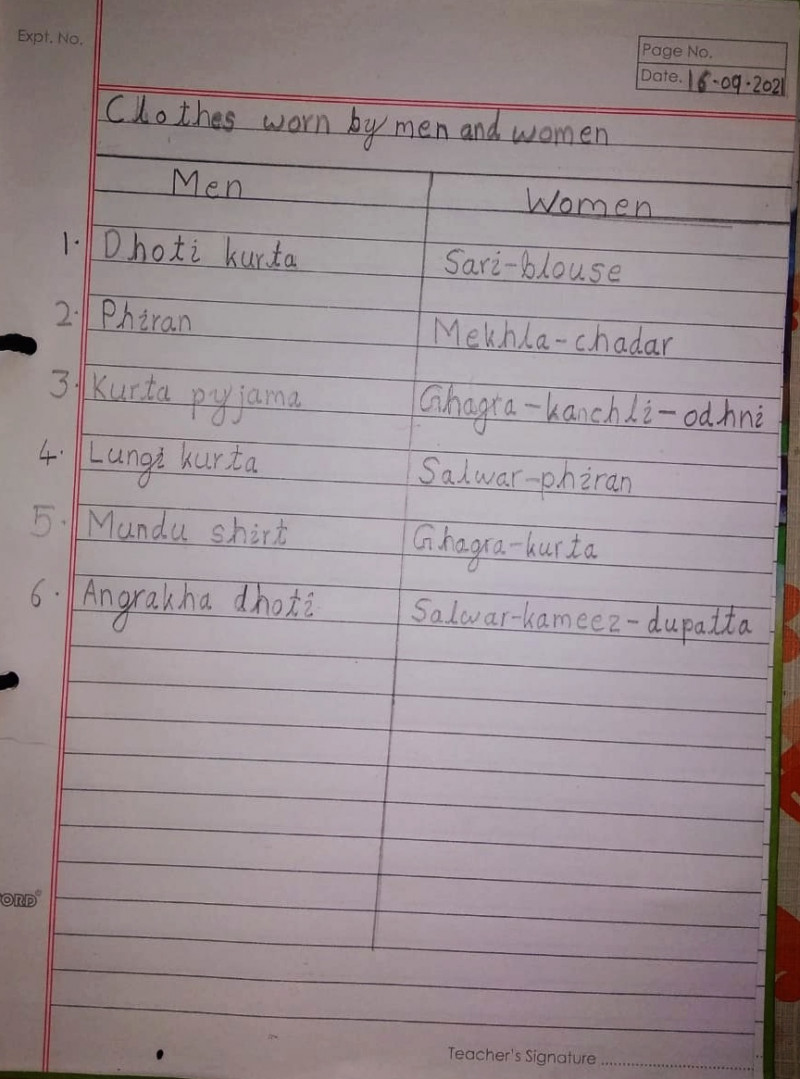 Expt. No.
Page No.
Date. 16-09-2021
Clothes worn by men and women
Men Women
1. Dhoti kurta Sari-blouse
2. Phiran Mekhla-chadar
3. Kurta pyjama Ghagra-kanchli-odhni
4. Lungi kurta Salwar-phiran
5. Mundu shirt Ghagra-kurta
6. Angrakha dhoti Salwar-kameez-dupatta
ORD
Teacher's Signature